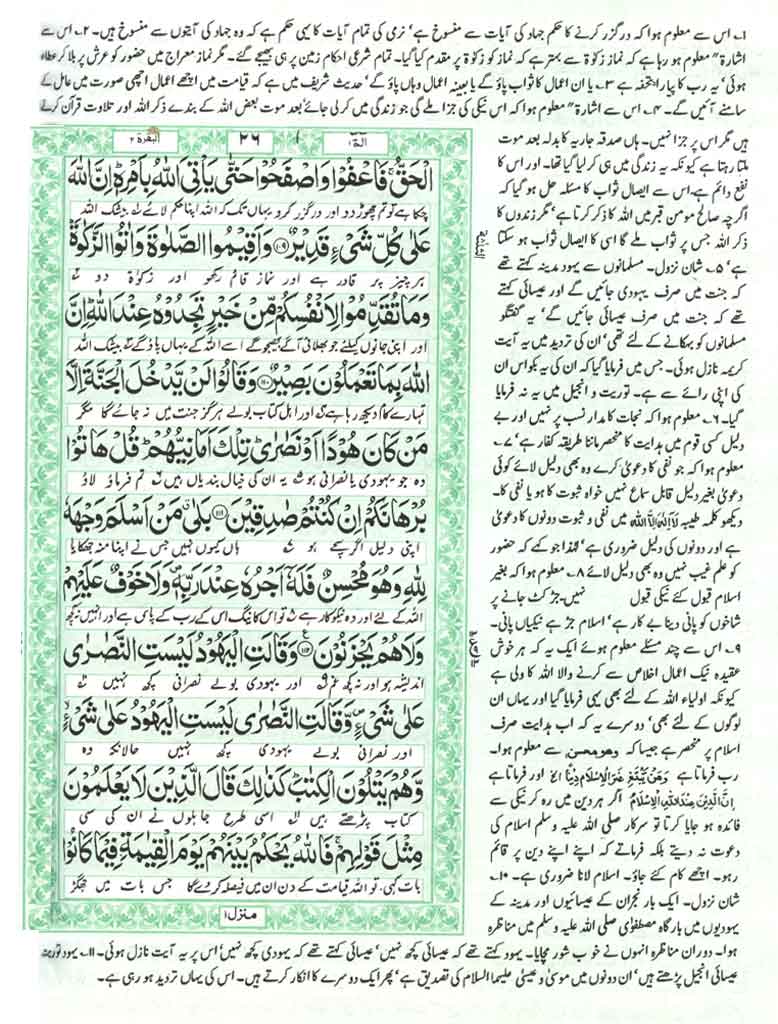 ۱۔ اس سے معلوم ہوا کہ درگزر کرنے کا حکم جہاد کی آیات سے منسوخ ہے' نرمی کی تمام آیات کا یہی حکم ہے کہ وہ جہاد کی آیتوں سے منسوخ ہیں۔ ۲۔ اس سے
اشارۃ" معلوم ہو رہا ہے کہ نماز زکوٰۃ سے بہتر ہے کہ نماز کو زکوٰۃ پر مقدم کیا گیا۔ تمام شرعی احکام زمین پر ہی بھیجے گئے۔ مگر نماز معراج میں حضور کو عرش پر بلا کر عطاء
ہوئی' یہ رب کا پیارا تحفہ ہے ۳۔ یا ان اعمال کا ثواب پاؤ گے یا بعینہ اعمال وہاں پاؤ گے' حدیث شریف میں ہے کہ قیامت میں اچھے اعمال اچھی صورت میں عامل کے
سامنے آئیں گے۔ ۴۔ اس سے اشارۃ" معلوم ہوا کہ اس نیکی کی جزا ملے گی جو زندگی میں کر لی جائے' بعد موت بعض اللہ کے بندے ذکر اللہ اور تلاوت قرآن کرتے
البقرة ۲
۲۶
الٓمّٓ ۱
الْحَقُّ ۚ فَاعْفُوْا وَاصْفَحُوْا حَتّٰى يَاْتِىَ اللّٰهُ بِاَمْرِهٖ ؕ اِنَّ اللّٰهَ
چکا ہے تو تم چھوڑ دو اور درگزر کرو یہاں تک کہ اللہ اپنا حکم لائے بیشک اللہ
عَلٰى كُلِّ شَىْءٍ قَدِيْرٌ ۝۱۰۹ وَاَقِيْمُوا الصَّلٰوةَ وَاٰتُوا الزَّكٰوةَ ؕ
ہر چیز پر قادر ہے اور نماز قائم رکھو اور زکوٰۃ دو
وَمَا تُقَدِّمُوْا لِاَنْفُسِكُمْ مِّنْ خَيْرٍ تَجِدُوْهُ عِنْدَ اللّٰهِ ؕ اِنَّ
اور اپنی جانوں کیلئے جو بھلائی آگے بھیجو گے اسے اللہ کے یہاں پاؤ گے بیشک اللہ
اللّٰهَ بِمَا تَعْمَلُوْنَ بَصِيْرٌ ۝۱۱۰ وَقَالُوْا لَنْ يَّدْخُلَ الْجَنَّةَ اِلَّا
تمہارے کام دیکھ رہا ہے اور اہل کتاب بولے ہرگز جنت میں نہ جائے گا مگر
مَنْ كَانَ هُوْدًا اَوْ نَصٰرٰى ؕ تِلْكَ اَمَانِيُّهُمْ ؕ قُلْ هَاتُوْا
وہ جو یہودی یا نصرانی ہو یہ ان کی خیال بندیاں ہیں تم فرماؤ لاؤ
بُرْهَانَكُمْ اِنْ كُنْتُمْ صٰدِقِيْنَ ۝۱۱۱ بَلٰى ۗ مَنْ اَسْلَمَ وَجْهَهٗ
اپنی دلیل اگر سچے ہو ہاں کیوں نہیں جس نے اپنا منہ جھکایا
لِلّٰهِ وَهُوَ مُحْسِنٌ فَلَهٗۤ اَجْرُهٗ عِنْدَ رَبِّهٖ ۪ وَلَا خَوْفٌ عَلَيْهِمْ
اللہ کے لئے اور وہ نیکوکار ہے تو اس کا نیگ اس کے رب کے پاس ہے اور انہیں نہ کچھ
وَلَا هُمْ يَحْزَنُوْنَ ۝۱۱۲ وَقَالَتِ الْيَهُوْدُ لَيْسَتِ النَّصٰرٰى
اندیشہ ہو اور نہ کچھ غم اور یہودی بولے نصرانی کچھ نہیں
عَلٰى شَىْءٍ ۪ وَّقَالَتِ النَّصٰرٰى لَيْسَتِ الْيَهُوْدُ عَلٰى شَىْءٍ ۙ
اور نصرانی بولے یہودی کچھ نہیں حالانکہ وہ
وَّهُمْ يَتْلُوْنَ الْكِتٰبَ ؕ كَذٰلِكَ قَالَ الَّذِيْنَ لَا يَعْلَمُوْنَ
کتاب پڑھتے ہیں اسی طرح جاہلوں نے ان کی سی
مِثْلَ قَوْلِهِمْ ۚ فَاللّٰهُ يَحْكُمُ بَيْنَهُمْ يَوْمَ الْقِيٰمَةِ فِيْمَا كَانُوْا
بات کہی تو اللہ قیامت کے دن ان میں فیصلہ کر دے گا جس بات میں جھگڑ
منزل ۱
ہیں مگر اس پر جزا نہیں۔ ہاں صدقہ جاریہ کا بدلہ بعد موت
ملتا رہتا ہے کیونکہ یہ زندگی میں ہی کر لیا گیا تھا۔ اور اس کا
نفع دائم ہے' اس سے ایصال ثواب کا مسئلہ حل ہو گیا کہ
اگرچہ صالح مومن قبر میں اللہ کا ذکر کرتا ہے' مگر زندوں کا
ذکر اللہ جس پر ثواب ملے گا اس کا ایصال ثواب ہو سکتا
ہے' ۵۔ شان نزول۔ مسلمانوں سے یہود مدینہ کہتے تھے
کہ جنت میں صرف یہودی جائیں گے اور عیسائی کہتے
تھے کہ جنت میں صرف عیسائی جائیں گے' یہ گفتگو
مسلمانوں کو بہکانے کے لئے تھی' ان کی تردید میں یہ آیت
کریمہ نازل ہوئی۔ جس میں فرمایا گیا کہ ان کی یہ بکواس ان
کی اپنی رائے سے ہے۔ توریت و انجیل میں یہ نہ فرمایا
گیا۔ ۶۔ معلوم ہوا کہ نجات کا مدار نسب پر نہیں اور بے
دلیل کسی قوم میں ہدایت کا منحصر ماننا طریقہ کفار ہے' ۷۔
معلوم ہوا کہ جو نفی کا دعویٰ کرے وہ بھی دلیل لائے کوئی
دعویٰ بغیر دلیل قابل سماع نہیں خواہ ثبوت کا ہو یا نفی کا۔
دیکھو کلمہ طیبہ لا الہ الا اللہ میں نفی و ثبوت دونوں کا دعویٰ
ہے اور دونوں کی دلیل ضروری ہے' لہٰذا جو کہے کہ حضور
کو علم غیب نہیں وہ بھی دلیل لائے ۸۔ معلوم ہوا کہ بغیر
اسلام قبول کئے نیکی قبول نہیں۔ جڑ کٹ جانے پر
شاخوں کو پانی دینا بے کار ہے' اسلام جڑ ہے نیکیاں پانی۔
۹۔ اس سے چند مسئلے معلوم ہوئے ایک یہ کہ ہر خوش
عقیدہ نیک اعمال اخلاص سے کرنے والا اللہ کا ولی ہے
کیونکہ اولیاء اللہ کے لئے بھی یہی فرمایا گیا اور یہاں ان
لوگوں کے لئے بھی' دوسرے یہ کہ اب ہدایت صرف
اسلام پر منحصر ہے جیسا کہ وھو محسن سے معلوم ہوا۔
رب فرماتا ہے وَمَنْ يَّبْتَغِ غَيْرَ الْاِسْلَامِ دِيْنًا اور فرماتا ہے
اِنَّ الدِّيْنَ عِنْدَ اللّٰهِ الْاِسْلَامُ اگر ہر دین میں رہ کر نیکی سے
فائدہ ہو جایا کرتا تو سرکار صلی اللہ علیہ وسلم اسلام کی
دعوت نہ دیتے بلکہ فرماتے کہ اپنے اپنے دین پر قائم
رہو۔ اچھے کام کئے جاؤ۔ اسلام لانا ضروری ہے۔ ۱۰۔
شان نزول۔ ایک بار نجران کے عیسائیوں اور مدینہ کے
یہودیوں میں بارگاہ مصطفوی صلی اللہ علیہ وسلم میں مناظرہ
ہوا۔ دوران مناظرہ انہوں نے خوب شور مچایا۔ یہود کہتے تھے کہ عیسائی کچھ نہیں' عیسائی کہتے تھے کہ یہودی کچھ نہیں' اس پر یہ آیت نازل ہوئی۔ ۱۱۔ یہود توریت
عیسائی انجیل پڑھتے ہیں' ان دونوں میں موسیٰ و عیسیٰ علیہما السلام کی تصدیق ہے' پھر ایک دوسرے کا انکار کرتے ہیں۔ اس کی یہاں تردید ہو رہی ہے۔